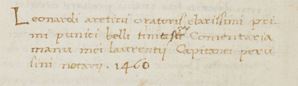 Leonardi aretini oratoris clarissimi pri
mi punici belli finit Comentaria
manu mei laurentij Capitanei peru
sini notarij. 1460